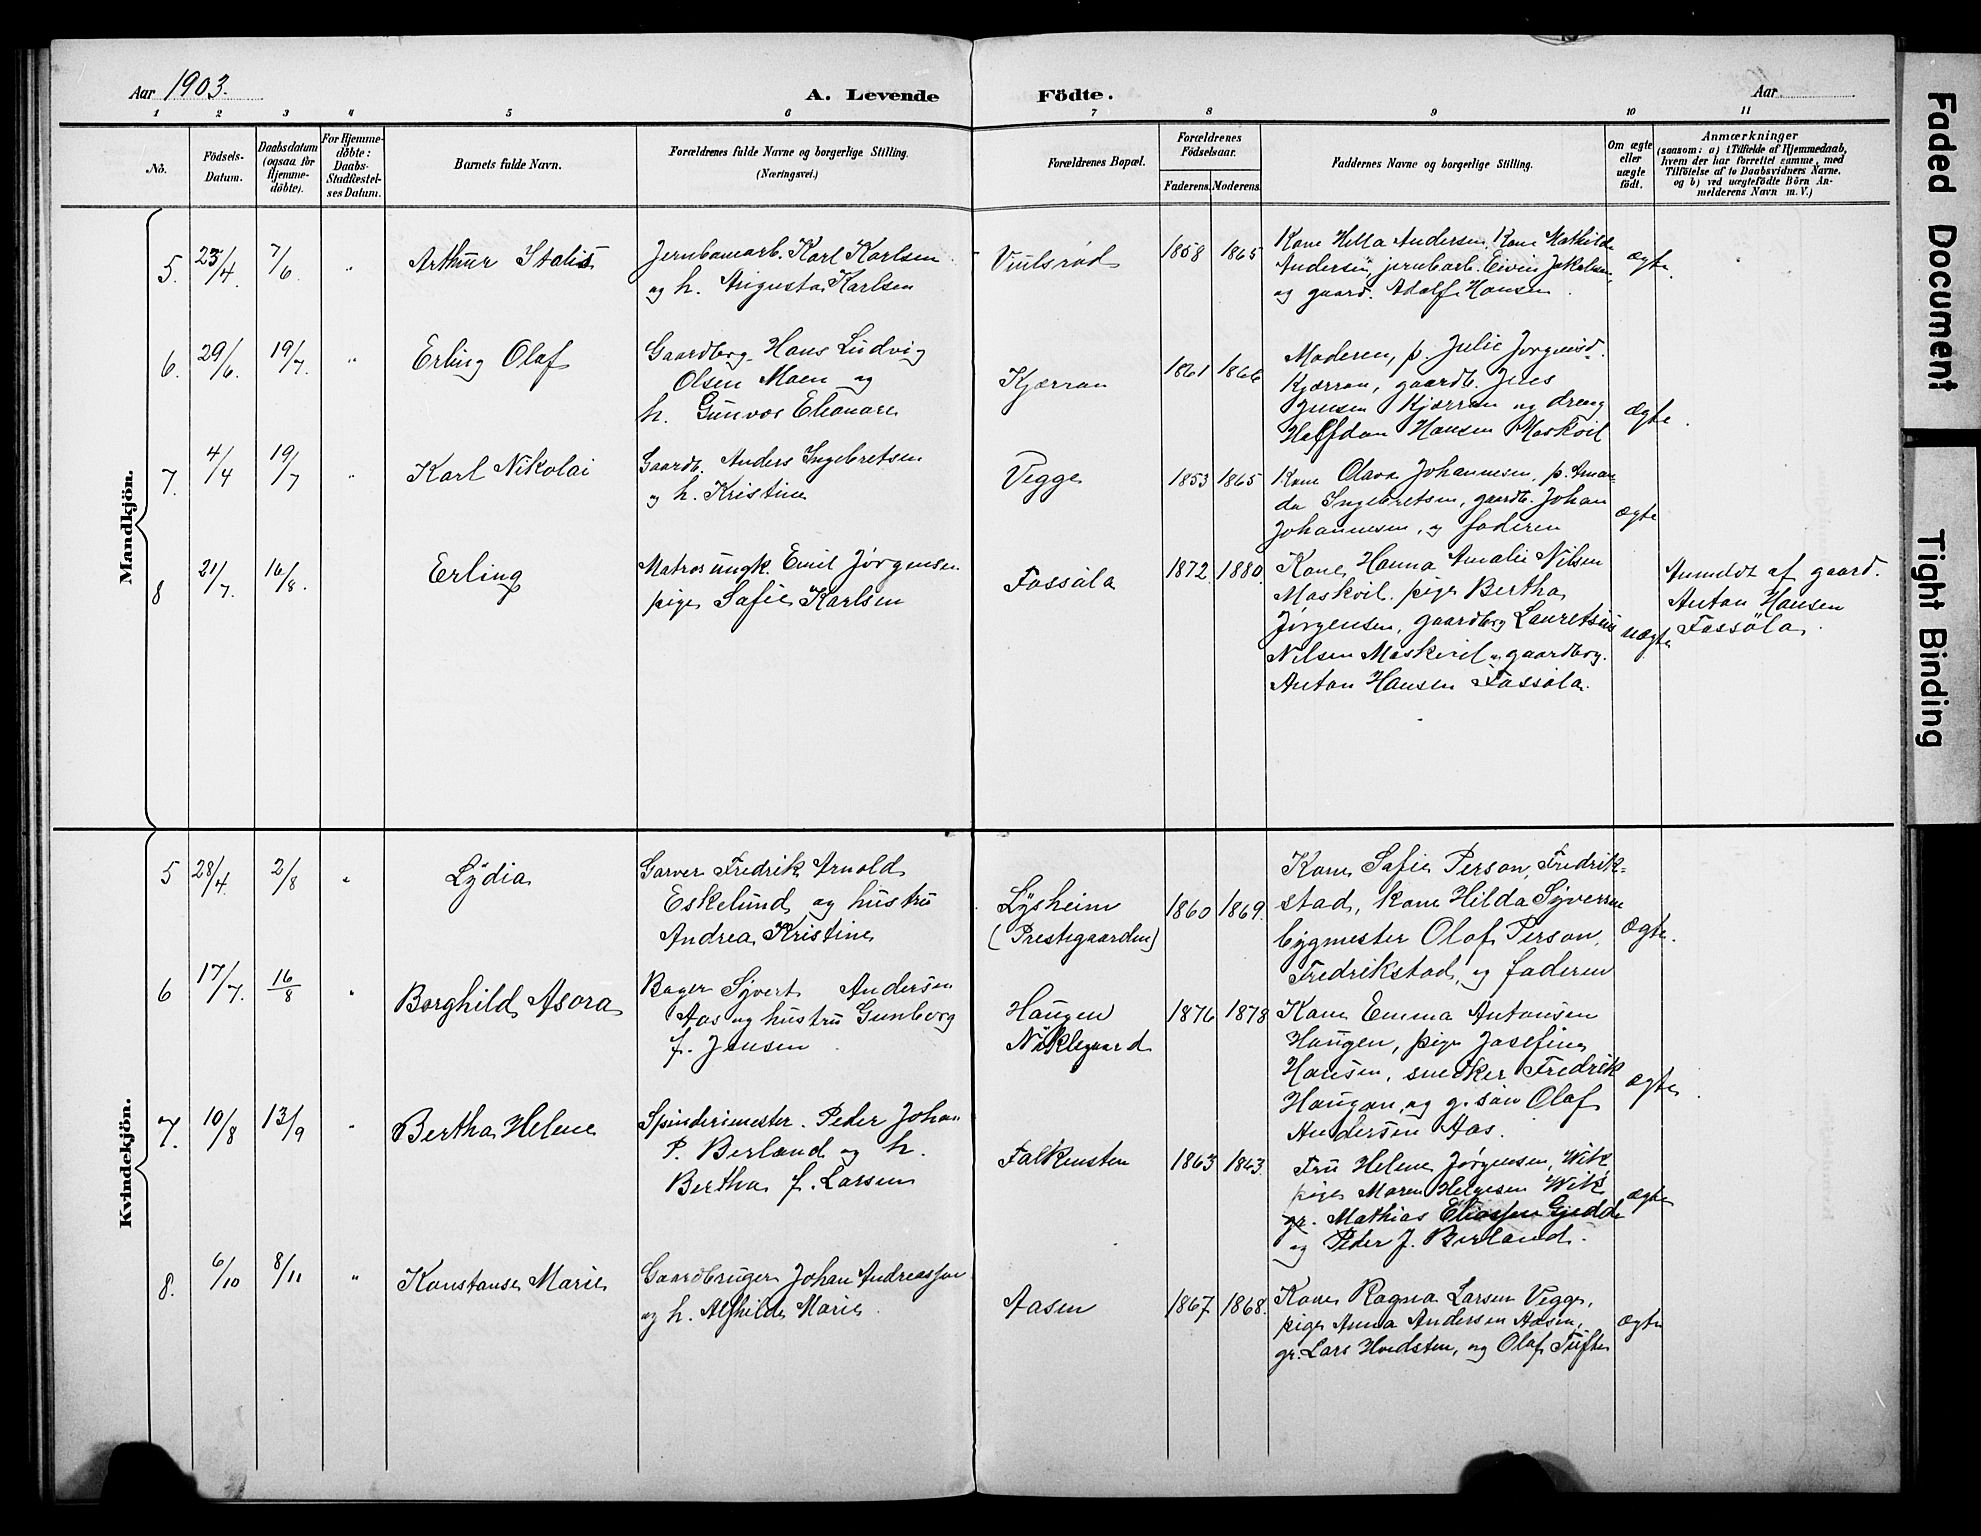 Aar 1903.
A. Levende Födte.
Aar
1 2 3 4 5 6 7 8 9 10 11
No.
Födsels-Datum.
Daabsdatum (ogsaa for Hjemme-döbte).
For Hjemme-döbte: Daabs-Stadfæstelses Datum.
Barnets fulde Navn.
Forældrenes fulde Navne og borgerlige Stilling.
(Næringsvei.)
Forældrenes Bopæl.
Forældrenes Födselsaar.
Faderens. Moderens.
Faddernes Navne og borgerlige Stilling.
Om ægte eller uægte födt.
Anmærkninger
(saasom: a) i Tilfælde af Hjemmedaab,
hvem der har forrettet samme, med
Tilföielse af to Daabsvidners Navne,
og b) ved uægtefödte Börn An-
melderens Navn m. V.)
Mandkjön.
5. 23/4. 7/6. "
Arthur Stalis
Jernbanearb. Karl Karlsen
og h. Augusta Karlsen
Viulsrød
1858 1865
Kone Hella Andersen, Kone Mathilde
Andersen, jernbarb. Eivin Jakobsen,
og gaard. Adolf Hansen.
ægte.
6. 29/6. 19/7. "
Erling Olaf
Gaardbrg. Hans Ludvig
Olsen Moen og
h. Gunvor Eleonore
Kjærran
1861 1866
Moderen, p. Julie Jørgensd.
Kjærran, gaardb. Jens
Jensen Kjærran og dreng
Halfdan Hansen Maskvil
ægte.
7. 4/4 19/7 "
Karl Nikolai
Gaardb. Anders Ingebretsen
og h. Kristine
Vegge
1853 1865
Kone Olava Johannesen, p. Aman-
da Ingebretsen, gaardb. Johan
Johannesen, og faderen
ægte
8 21/7. 16/8. "
Erling
Matros ungk. Emil Jørgensen
pige Safie Karlsen
Fossöla
1872 1880.
Kone Hanna Amalie Nilsen
Maskvil. pige Bertha
Jørgensen, gaardbrg Lauretsius
Nilsen Maskvil og gaardbrg.
Anton Hansen Fossöla.
uægte
Anmeldt af gaard.
Anton Hansen
Fossöla.
Kvindekjön.
5 28/4. 2/8 "
Lydia
Garver Fredrik Arnold
Eskelund og hustru
Andrea Kristine
Lysheim
(Prestegaarden)
1860 1869.
Kone Safie Person, Fredrik-
stad, kone Hilda Syversen
bygmester Olaf Person,
Fredrikstad, og faderen
ægte.
6 17/7. 16/8 "
Borghild Asora
Bager Syvert Andersen
Aas og hustru Gunborg
f. Jensen
Haugen
Nöklegaard
1876 1878
Kone Emma Antonsen
Haugen, pige Josefine
Hansen, snedker Fredrik
Haugan, og g. søn Olaf
Andersen Aas.
ægte.
7. 10/8 13/9 "
Bertha Helene
Spinderimester. Peder Johan
P. Berland og h.
Bertha f. Larsen
Falkensten
1863 1843.
Fru Helene Jørgensen, Wik,
pige Maren Helgesen Wik
gr. Mathias Eliassen Gjedde
og Peder J. Berland.
ægte
8. 6/10 8/11 "
Konstanse Marie
Gaardbruger Johan Andreassen
og h. Alfhilde Marie.
Aasen
1867 1868.
Kone Ragna Larsen Vegge,
pige Anna Andersen Aasen,
gr. Lars Hvidsten, og Olaf Tufte
ægte
Faded Document
Tight Binding